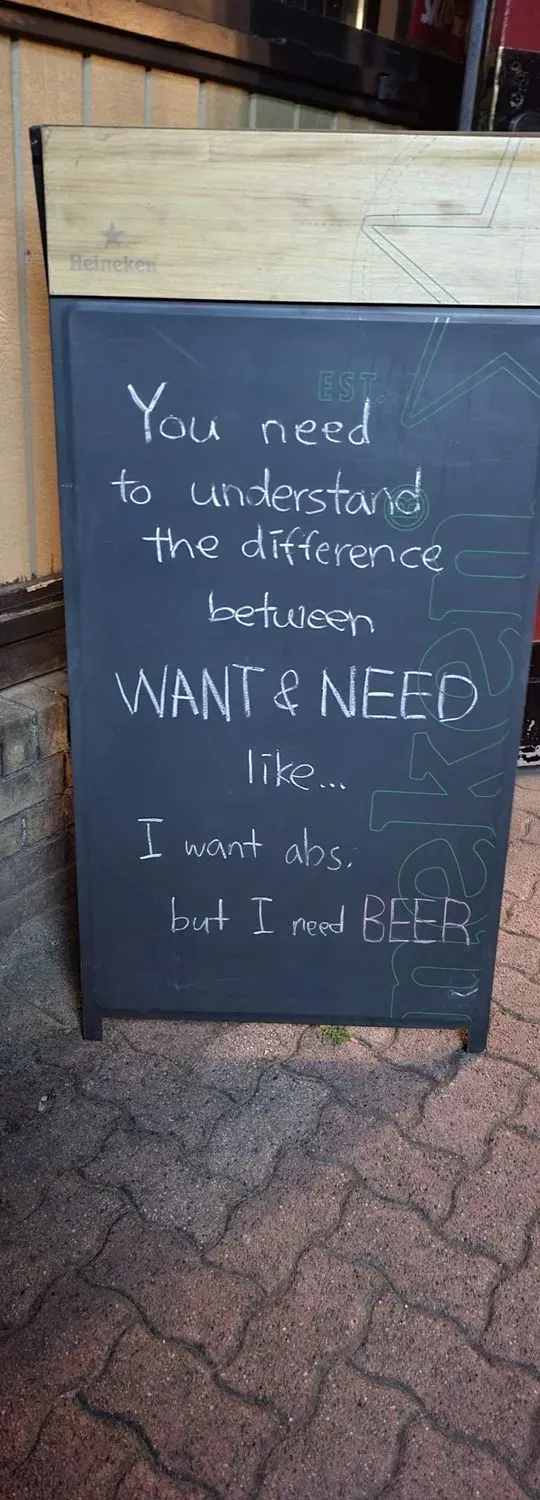 Heineken
EST.
You need
to understand
the difference
between
WANT & NEED
like...
I want abs.
but I need BEER
neken